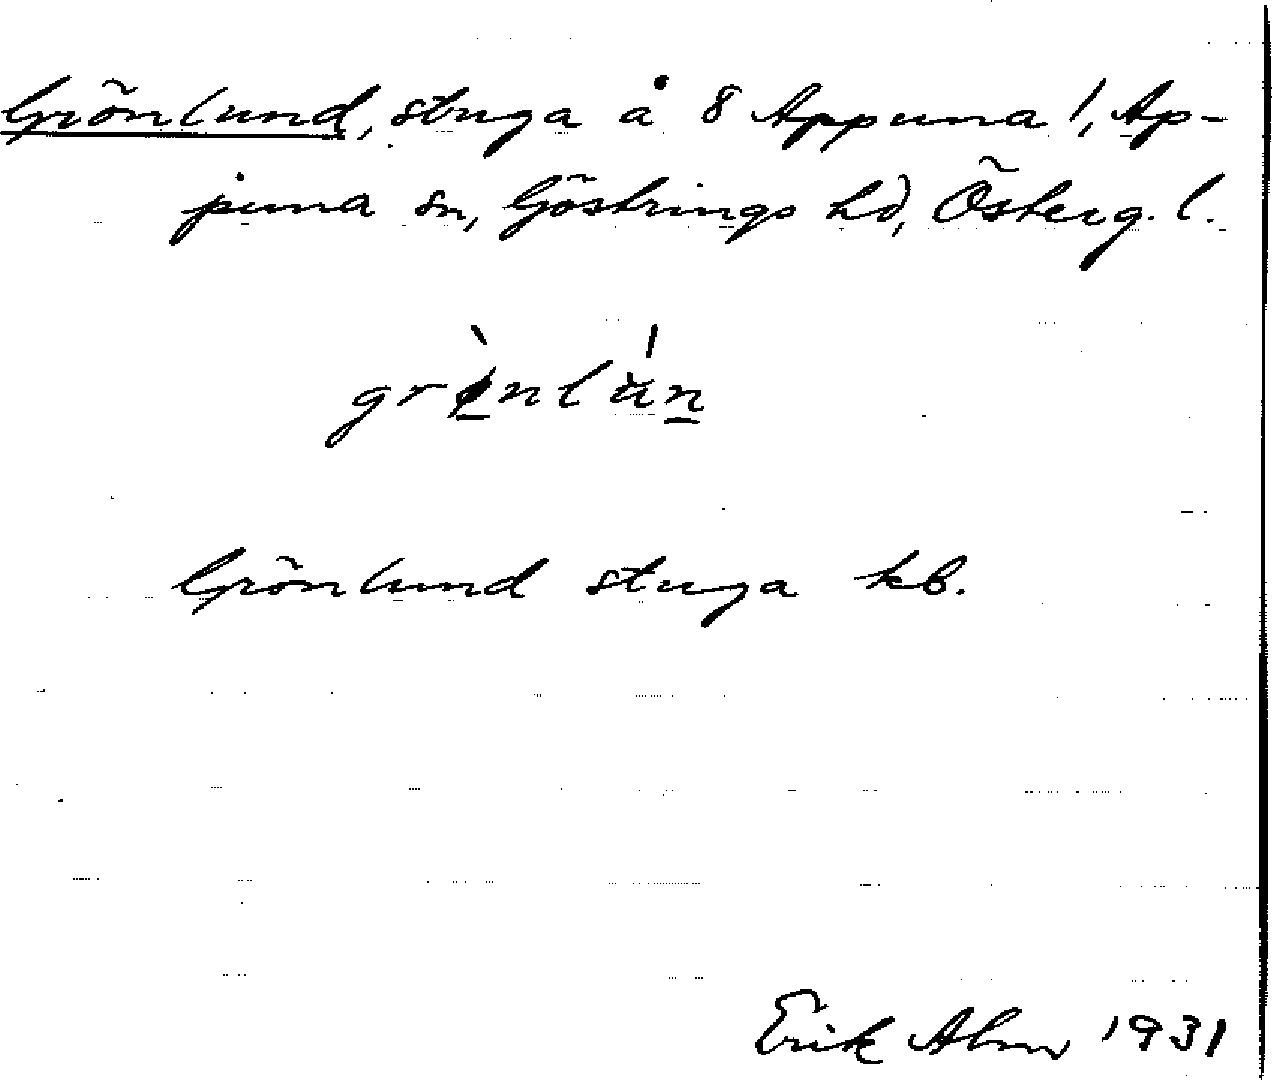 Grönlund, stuga å 8 Appuna 1, Ap-
puna sn, Göstrings hd, Österg. l.
grø̀nlún
Grönlund stuga kb.
Erik Alm 1931